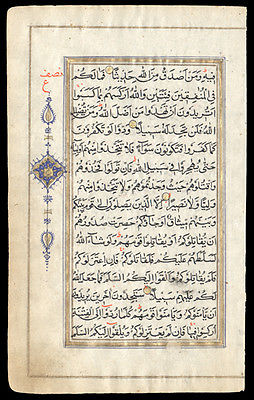 نصف
ع
فيه ومن اصدق من الله حديثا فما لكم
في المنفقين فئتين والله اركسهم بما كسبوا
اتريدون ان تهدوا من اضل الله ومن يضلل
الله فلن تجد له سبيلا ودوا لو تكفرون
كما كفروا فتكونون سواء فلا تتخذوا منهم اولياء
حتى يهاجروا في سبيل الله فان تولوا فخذوهم
واقتلوهم حيث وجدتموهم ولا تتخذوا منهم
وليا ولا نصيرا الا الذين يصلون الى قوم بينكم
وبينهم ميثاق او جاؤكم حصرت صدورهم
ان يقاتلوكم او يقاتلوا قومهم ولو شاء الله
لسلطهم عليكم فلقاتلوكم فان اعتزلوكم
فلم يقاتلوكم والقوا اليكم السلم فما جعل الله
لكم عليهم سبيلا ستجدون اخرين يريدون
ان يامنوكم ويامنوا قومهم كلما ردوا الى الفتنة
اركسوا فيها فان لم يعتزلوكم ويلقوا اليكم السلم